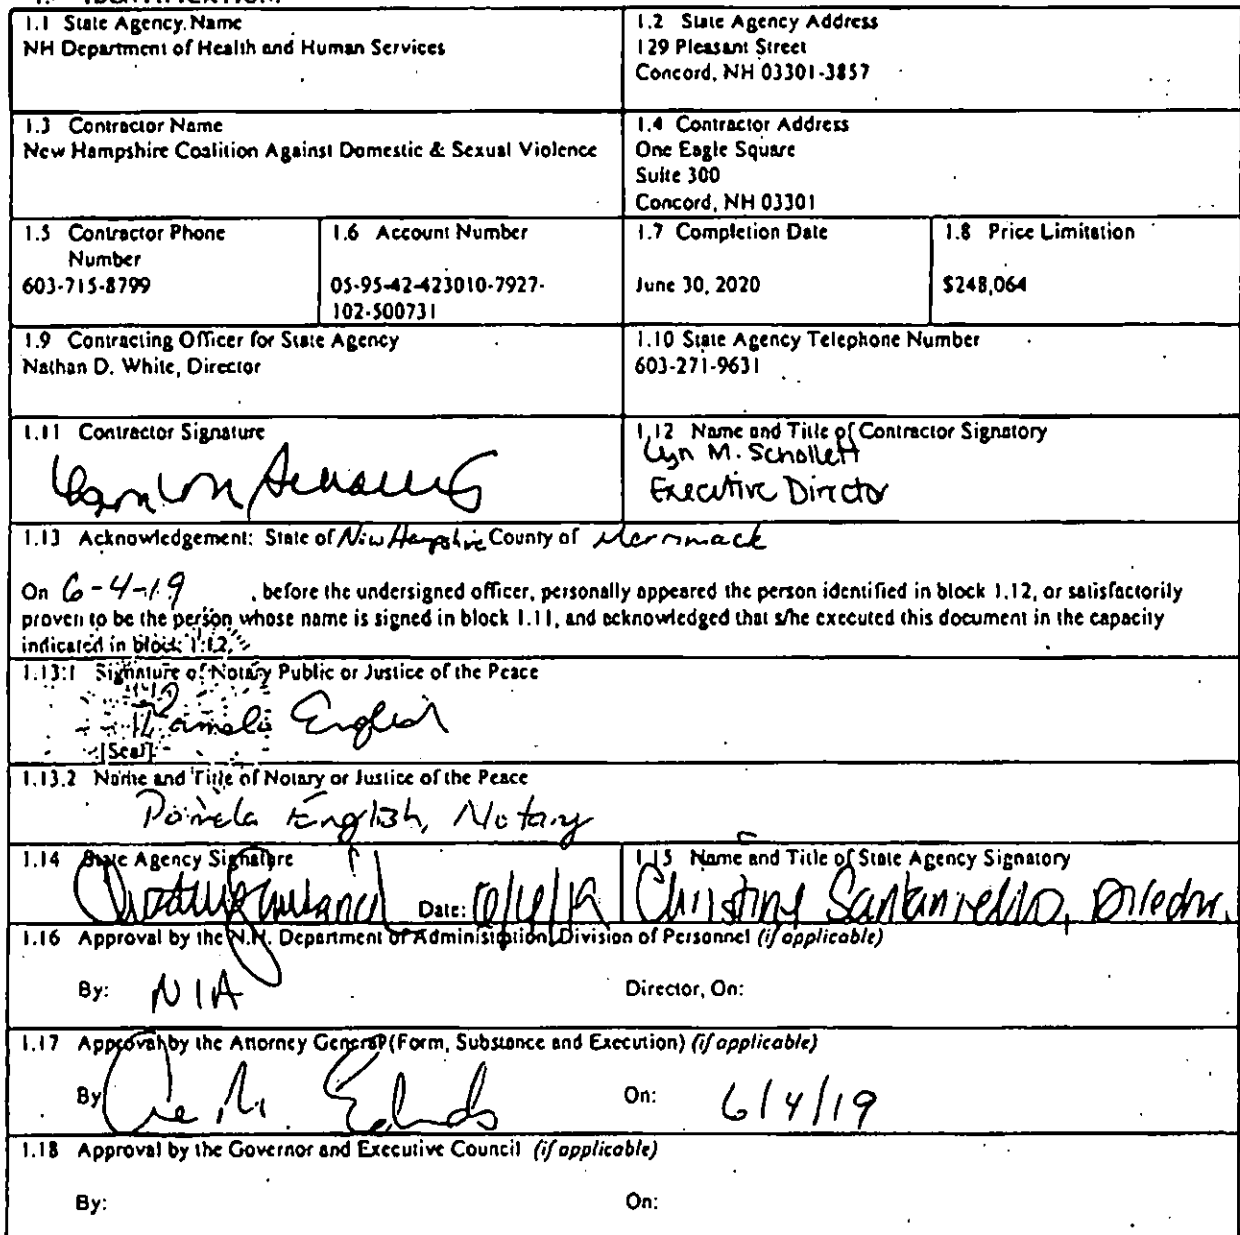 1. IDENTIFICATION.
1.1 State Agency Name
NH Department of Health and Human Services
1.2 State Agency Address
129 Pleasant Street
Concord, NH 03301-3857
1.3 Contractor Name
New Hampshire Coalition Against Domestic & Sexual Violence
1.4 Contractor Address
One Eagle Square
Suite 300
Concord, NH 03301
1.5 Contractor Phone
Number
603-715-8799
1.6 Account Number
05-95-42-423010-7927-
102-500731
1.7 Completion Date
June 30, 2020
1.8 Price Limitation
$248,064
1.9 Contracting Officer for State Agency
Nathan D. White, Director
1.10 State Agency Telephone Number
603-271-9631
1.11 Contractor Signature
1.12 Name and Title of Contractor Signatory
Lyn M. Schollett
Executive Director
1.13 Acknowledgement: State of New Hampshire County of Merrimack
On 6-4-19 , before the undersigned officer, personally appeared the person identified in block 1.12, or satisfactorily
proven to be the person whose name is signed in block 1.11, and acknowledged that s/he executed this document in the capacity
indicated in block 1.12.
1.13.1 Signature of Notary Public or Justice of the Peace
Pamela English
[Seal]
1.13.2 Name and Title of Notary or Justice of the Peace
Pamela English, Notary
1.14 State Agency Signature
Date:
1.15 Name and Title of State Agency Signatory
Christine Santaniello, Director
1.16 Approval by the N.H. Department of Administration, Division of Personnel (if applicable)
By: N/A
Director, On:
1.17 Approval by the Attorney General (Form, Substance and Execution) (if applicable)
By:
On: 6/4/19
1.18 Approval by the Governor and Executive Council (if applicable)
By:
On: